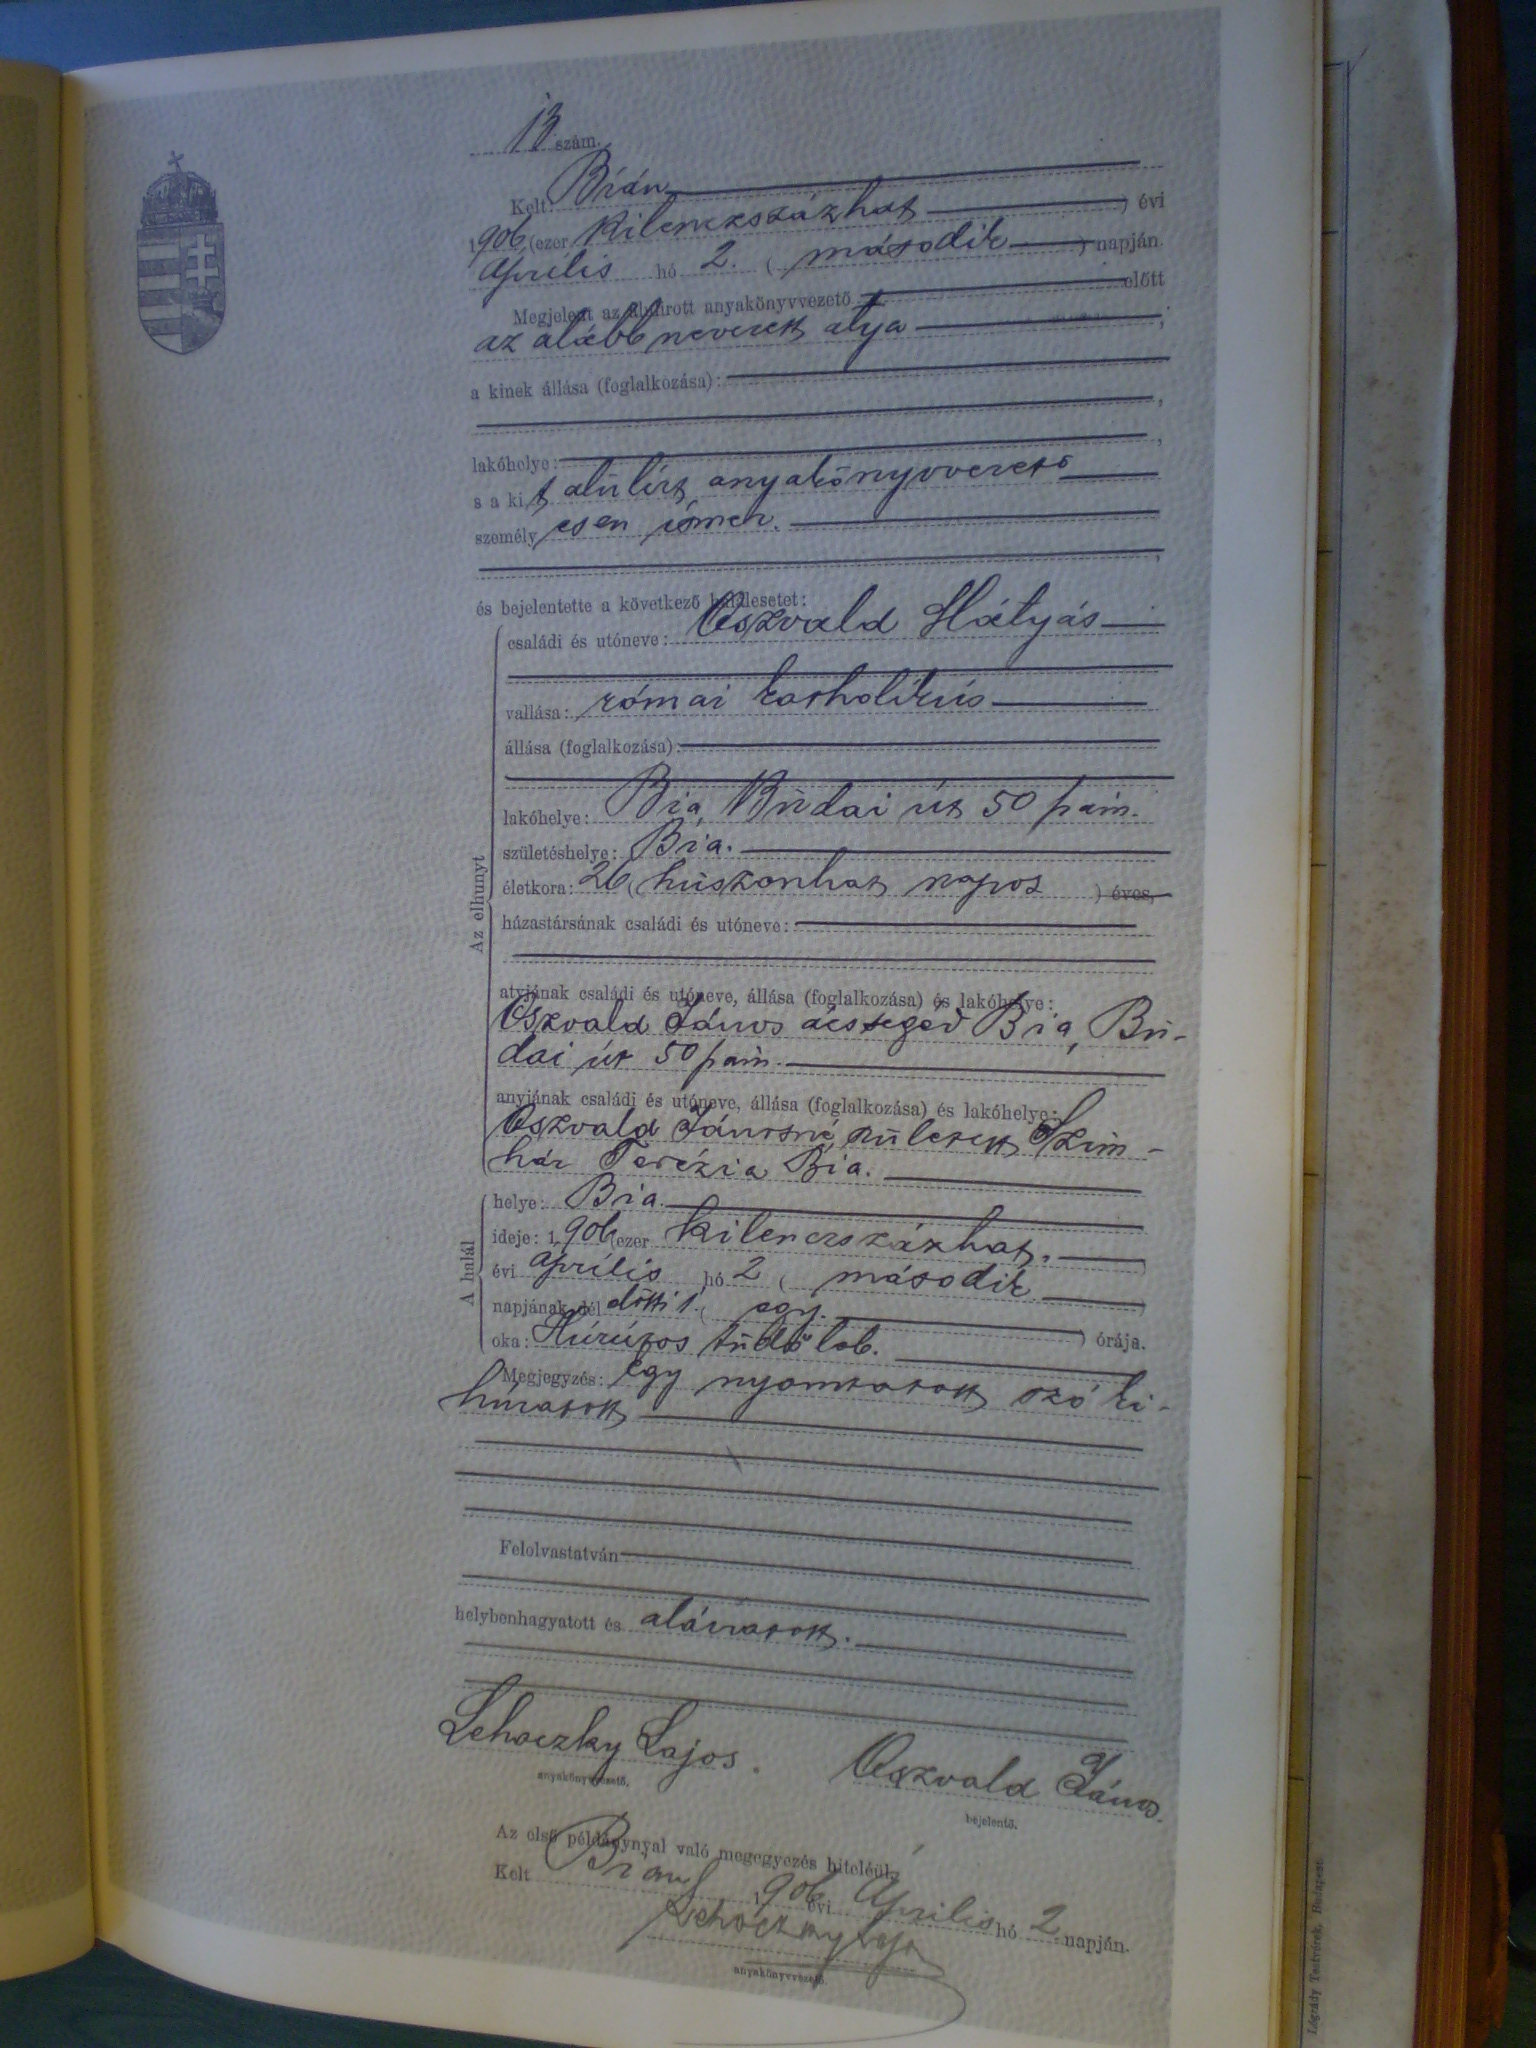 13 szám.
Kelt: Bián
1906, (ezer kilenczszázhat ) évi
április hó 2. ( második ) napján.
Megjelent az alulirott anyakönyvvezető előtt
az alább nevezett atya ;
a kinek állása (foglalkozása):
,
lakóhelye: ,
s a kit alúlírt anyakönyvvezető
személyesen ismer.
,
és bejelentette a következő halálesetet:
családi és utóneve: Oszvald Mátyás
vallása: római katholikus
állása (foglalkozása):
lakóhelye: Bia, Budai út 50
születéshelye: Bia.
életkora: 26 ( huszonhat napos ) éves,
házastársának családi és utóneve:
atyjának családi és utóneve, állása (foglalkozása) és lakóhelye:
Oszvald János ácssegéd Bia, Bu-
dai út 50
anyjának családi és utóneve, állása (foglalkozása) és lakóhelye:
Oszvald Jánosné, született Szim-
hár Terézia Bia.
Az elhunyt
helye: Bia.
ideje: 1906 (ezer kilenczszázhat. )
évi április hó 2 ( második )
napjának dél előtti 1. ( egy. ) órája.
oka: Húrútos tüdőlob.
A halál
Megjegyzés: Egy nyomtatott szó ki-
húzatott
Felolvastatván
helybenhagyatott és aláiratott.
Lehoczky Lajos. Oszvald János.
anyakönyvvezető. bejelentő.
Az első példánynyal való megegyezés hiteléül:
Kelt Bián, 1906 évi Április hó 2 napján.
Lehoczky Lajos
anyakönyvvezető.
Légrády Testvérek, Budapest.